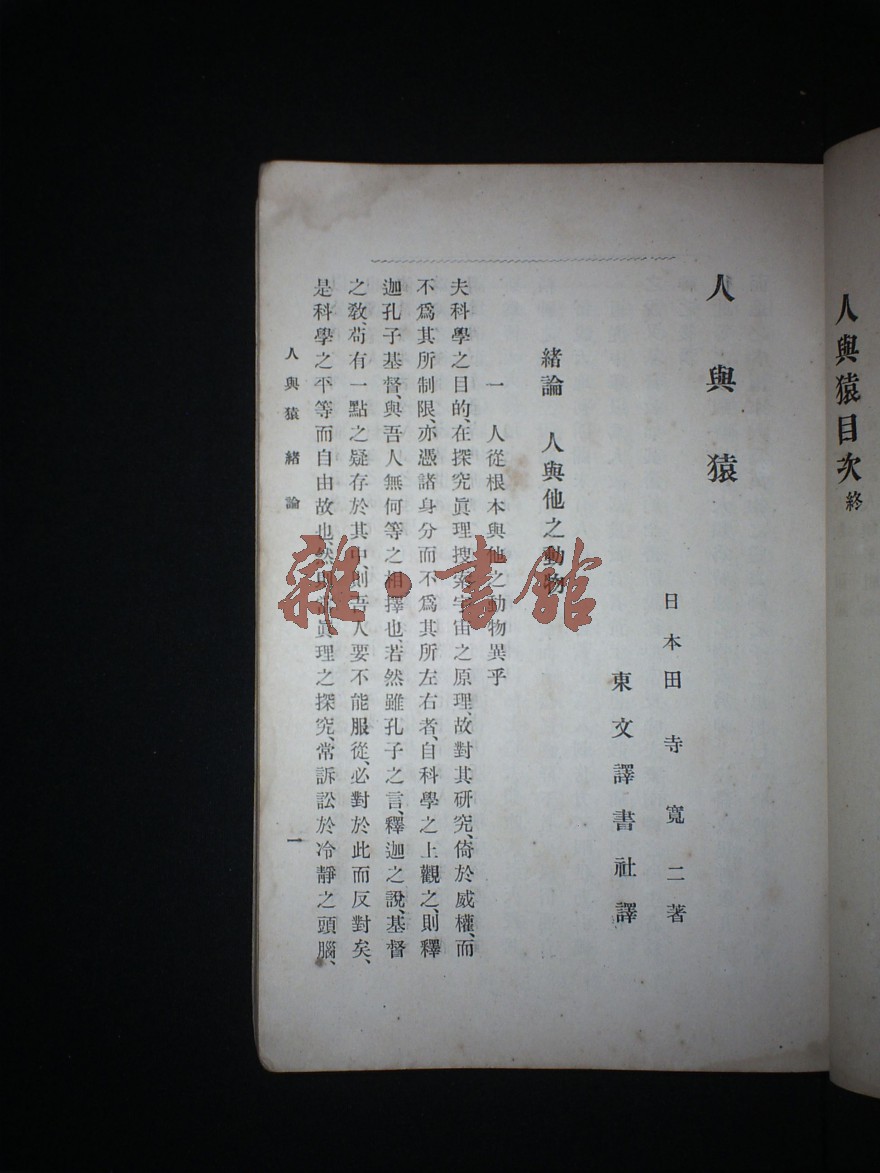 人與猿目次終
人與猿
日本田寺寬二著
東文譯書社譯
緒論　人與他之動物
一　人從根本與他之動物異乎
夫科學之目的、在探究眞理搜索宇宙之原理、故對其研究、倚於威權、而
不爲其所制限、亦憑諸身分而不爲其所左右者、自科學之上觀之、則釋
迦孔子基督、與吾人無何等之相擇也、若然雖孔子之言、釋迦之說、基督
之敎、苟有一點之疑存於其中、則吾人要不能服從、必對於此而反對矣、
是科學之平等而自由故也、然則眞理之探究、常訴訟於冷靜之頭腦、
人與猿緒論
一
雜·書館